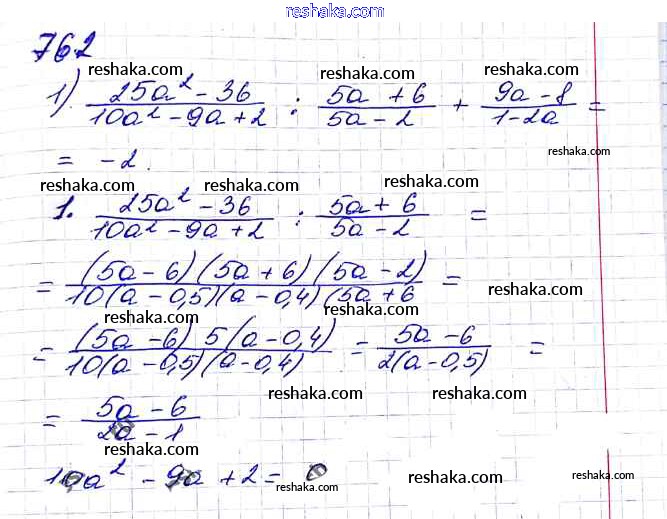 reshaka.com
762
reshaka.com reshaka.com reshaka.com
1) (25a² - 36)/(10a² - 9a + 2) : (5a + 6)/(5a - 2) + (9a - 8)/(1 - 2a) =
reshaka.com
= -2.
reshaka.com reshaka.com reshaka.com reshaka.com
1. (25a² - 36)/(10a² - 9a + 2) : (5a + 6)/(5a - 2) =
reshaka.com reshaka.com
= (5a - 6)(5a + 6)(5a - 2)/10(a - 0,5)(a - 0,4)(5a + 6 =
reshaka.com
reshaka.com reshaka.com
= (5a - 6) 5(a - 0,4)/10(a - 0,5)(a - 0,4) = (5a - 6)/2(a - 0,5) =
reshaka.com
reshaka.com reshaka.com
= (5a - 6)/(2a - 1)
reshaka.com reshaka.com
10a² - 9a + 2 = 0
reshaka.com reshaka.com reshaka.com
reshaka.com